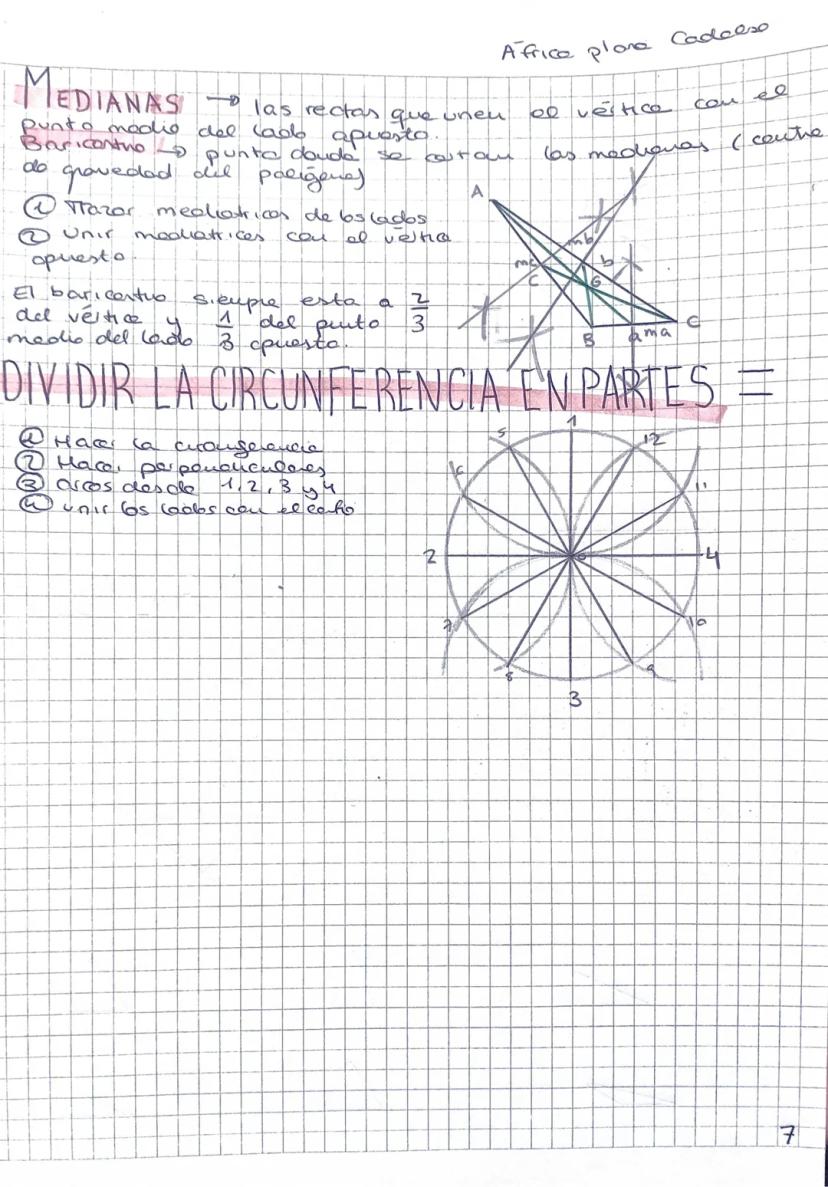 África plana Cadalso
MEDIANAS → las rectas que unen el vértice con el
punto medio del lado opuesto.
Baricentro → punto donde se cortan las medianas (centro
de gravedad del polígono)
① Trazar mediatrices de los lados
② Unir mediatrices con el vértice
opuesto.
El baricentro siempre esta a 2/3
del vértice y 1/3 del punto
medio del lado opuesto.
A
mb
mc
b
C
G
B
a
ma
C
DIVIDIR LA CIRCUNFERENCIA EN PARTES =
① Hacer la circunferencia
② Hacer perpendiculares
③ arcos desde 1, 2, 3 y 4
④ unir los lados con el centro
1
5
12
6
11
2
4
7
10
8
9
3
7